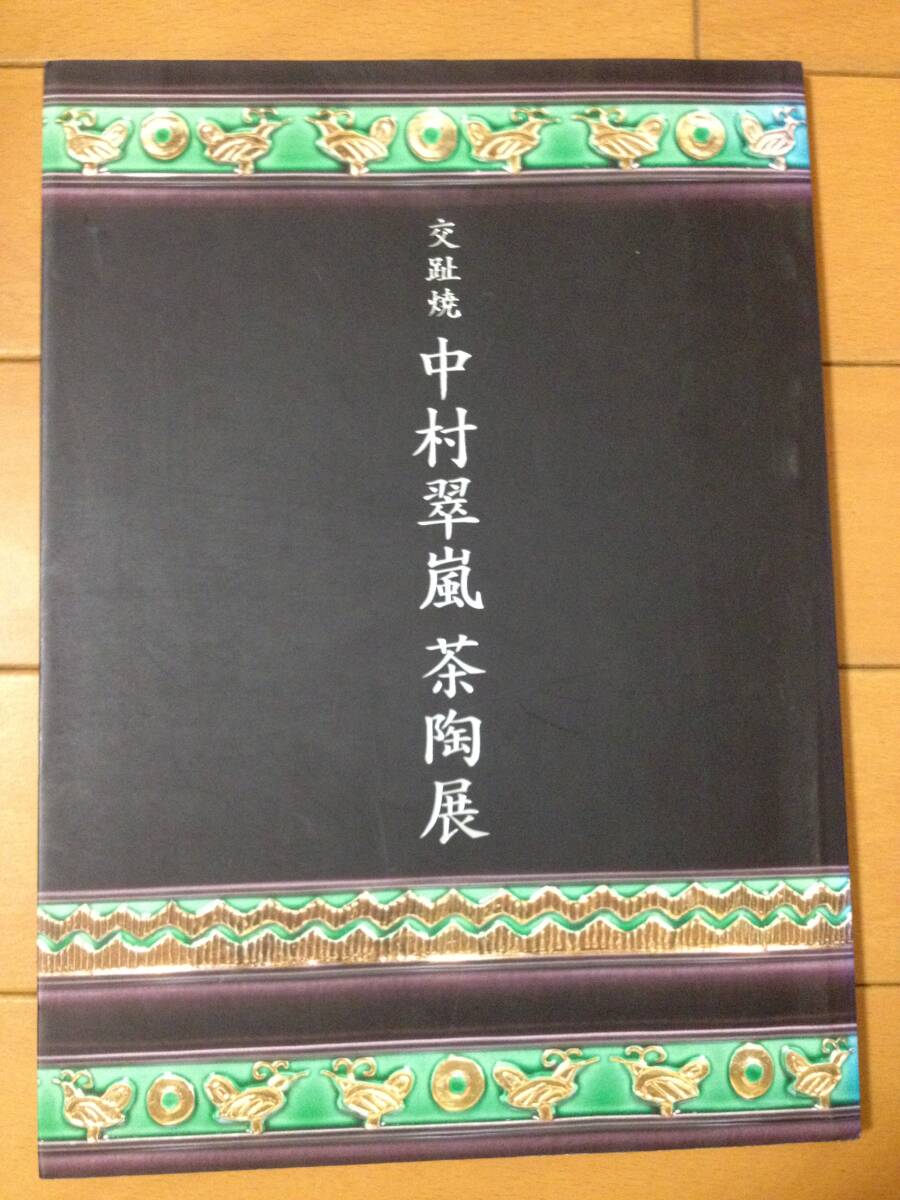 交趾焼 中村翠嵐 茶陶展